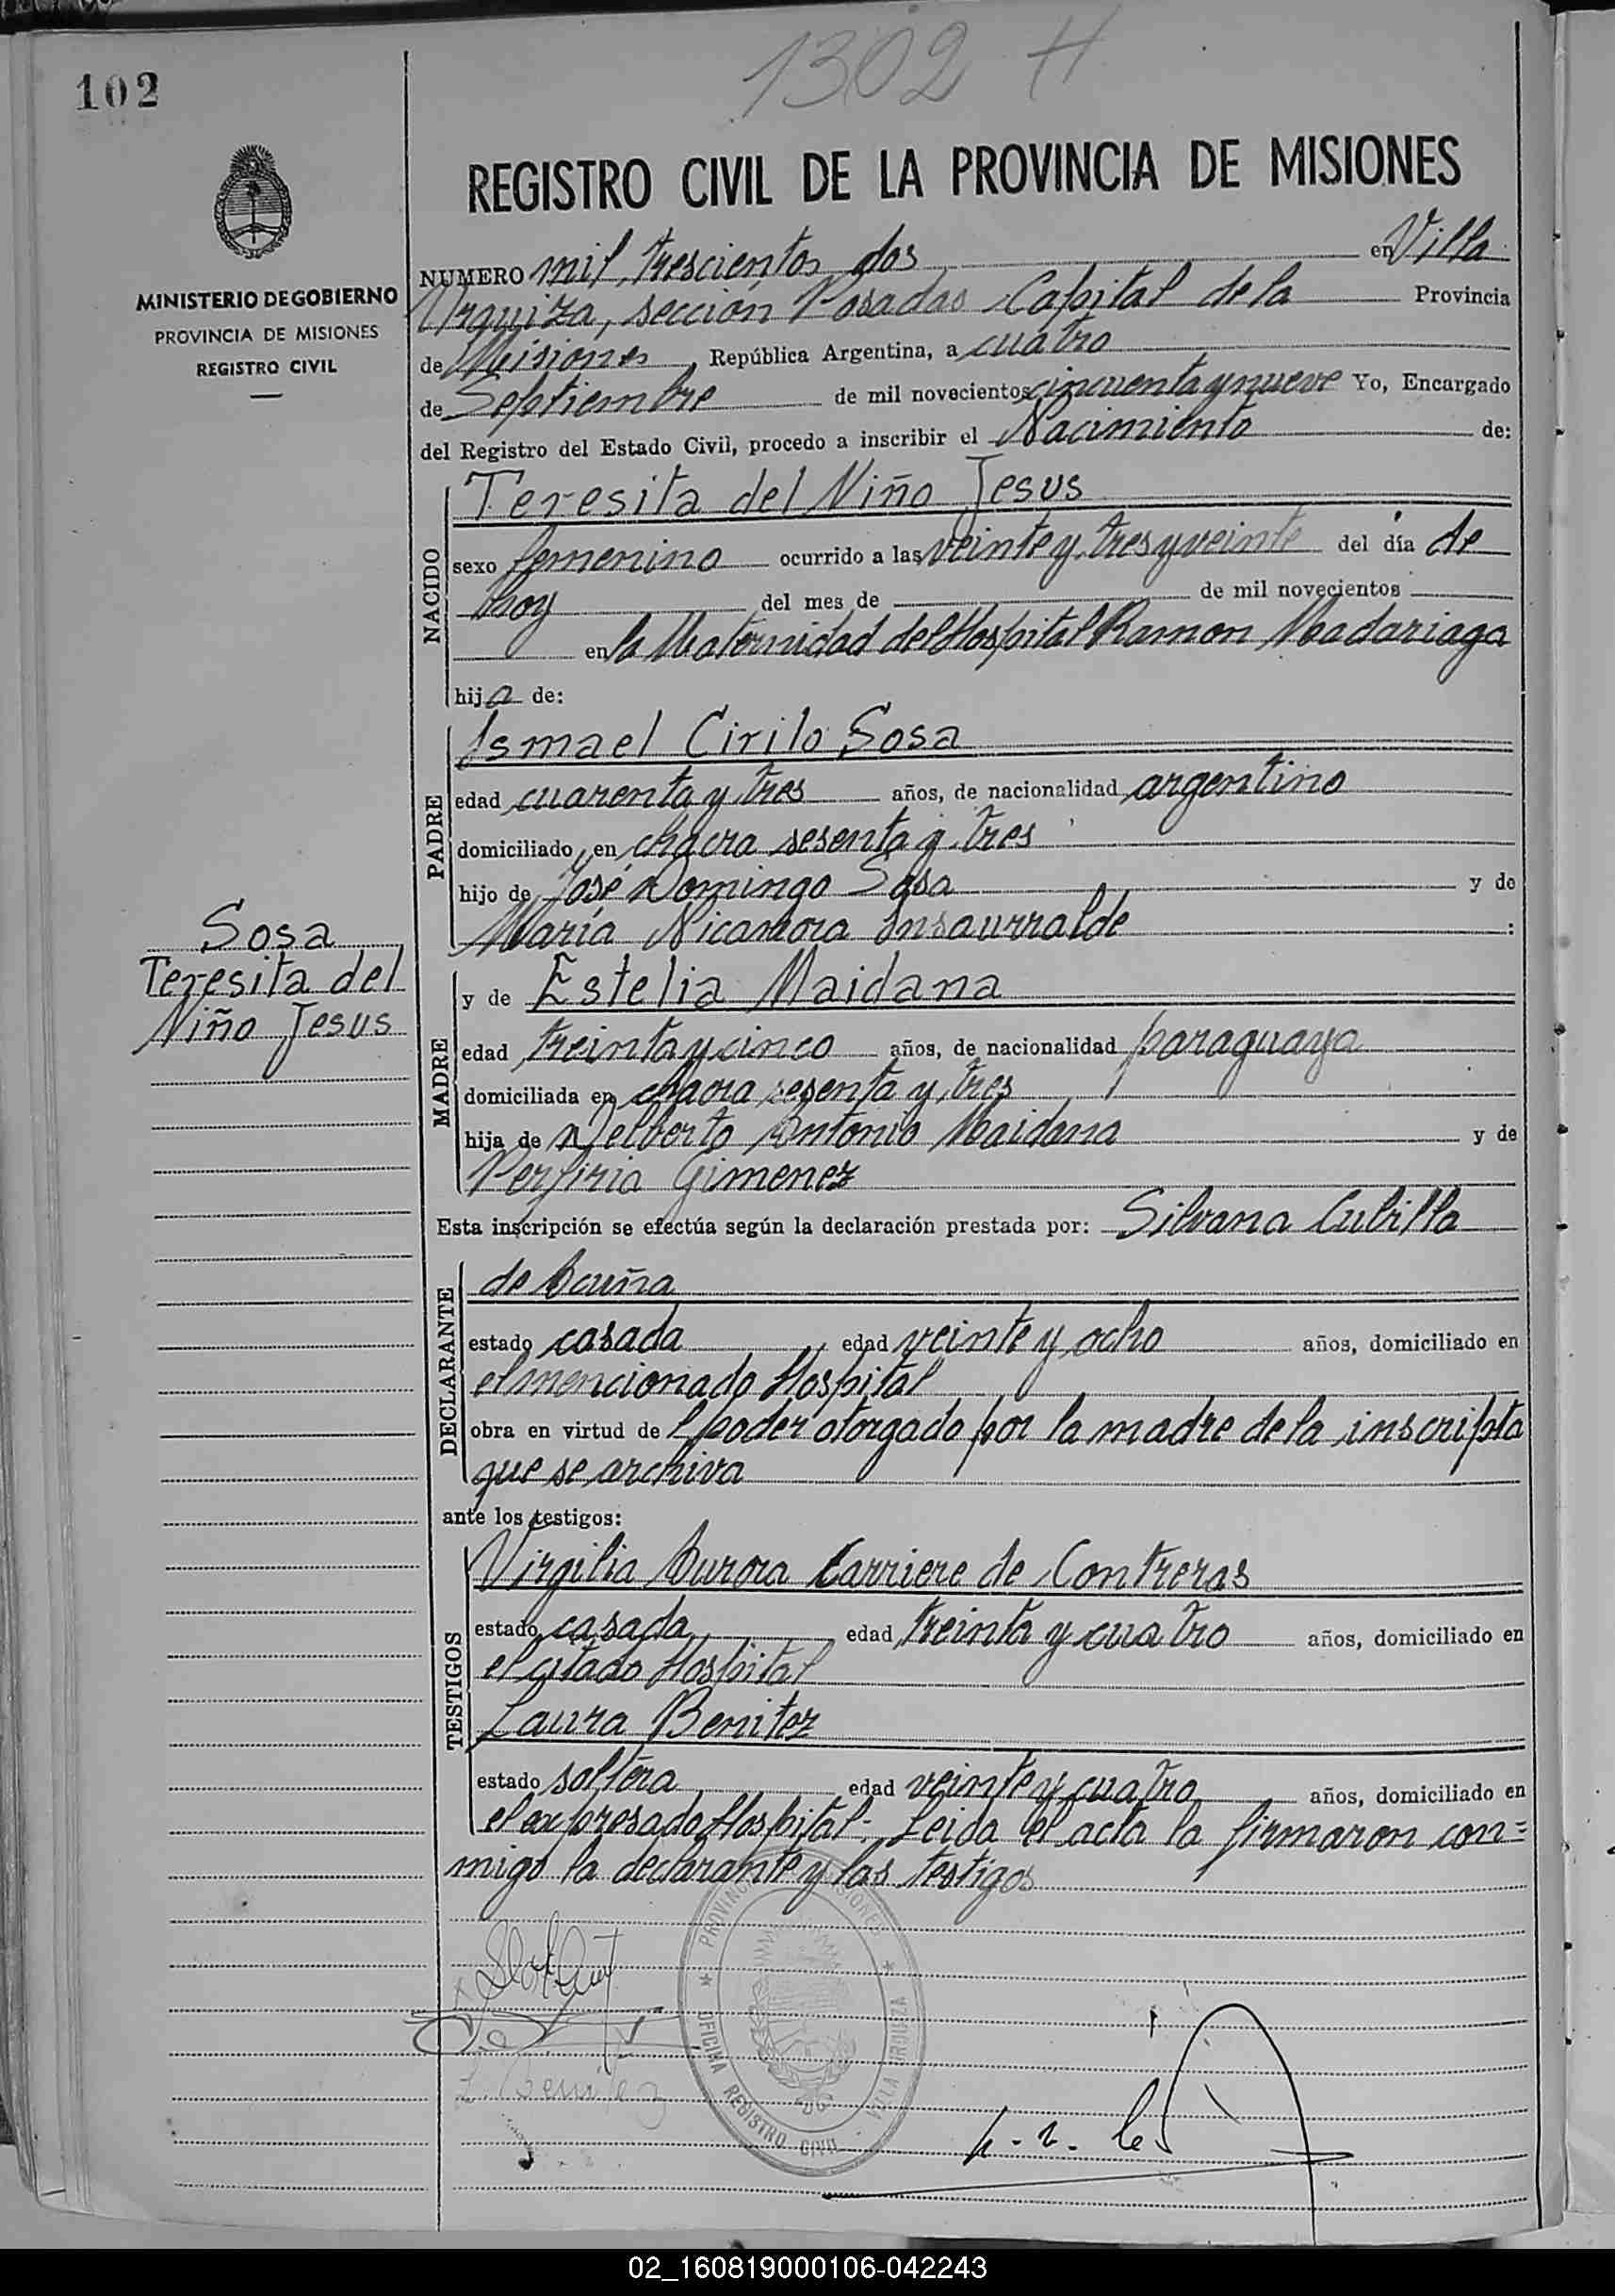 102
1302 H
REGISTRO CIVIL DE LA PROVINCIA DE MISIONES
MINISTERIO DE GOBIERNO
PROVINCIA DE MISIONES
REGISTRO CIVIL
NUMERO mil, trescientos dos en Villa
Urquiza, sección Posadas Capital de la Provincia
de Misiones, República Argentina, a cuatro
de Septiembre de mil novecientos cincuenta y nueve Yo, Encargado
del Registro del Estado Civil, procedo a inscribir el Nacimiento de:
NACIDO
Teresita del Niño Jesus
sexo femenino ocurrido a las veinte y tres y veinte del día de
hoy del mes de de mil novecientos
en la Maternidad del Hospital Ramon Madariaga
hija de:
PADRE
Ismael Cirilo Sosa
edad cuarenta y tres años, de nacionalidad argentino
domiciliado en chacra sesenta y tres
hijo de José Domingo Sosa y de
María Nicanora Insaurralde :
Sosa
Teresita del
Niño Jesus
MADRE
y de Estelia Maidana
edad treinta y cinco años, de nacionalidad paraguaya
domiciliada en chacra sesenta y tres
hija de Delberto Antonio Maidana y de
Perfiria Gimenez
Esta inscripción se efectúa según la declaración prestada por: Silvana Cubilla
DECLARANTE
de Acuña
estado casada, edad veinte y ocho años, domiciliado en
el mencionado Hospital
obra en virtud del poder otorgado por la madre de la inscripta
que se archiva
ante los testigos:
TESTIGOS
Virgilia Aurora Carriere de Contreras
estado casada, edad treinta y cuatro años, domiciliado en
el citado Hospital
Laura Benitez
estado soltera edad veinte y cuatro años, domiciliado en
el expresado Hospital: Leida el acta la firmaron con=
migo la declarante y las testigos
PROVINCIA DE MISIONES
OFICINA REGISTRO CIVIL - VILLA URQUIZA
L. Benitez
02_160819000106-042243